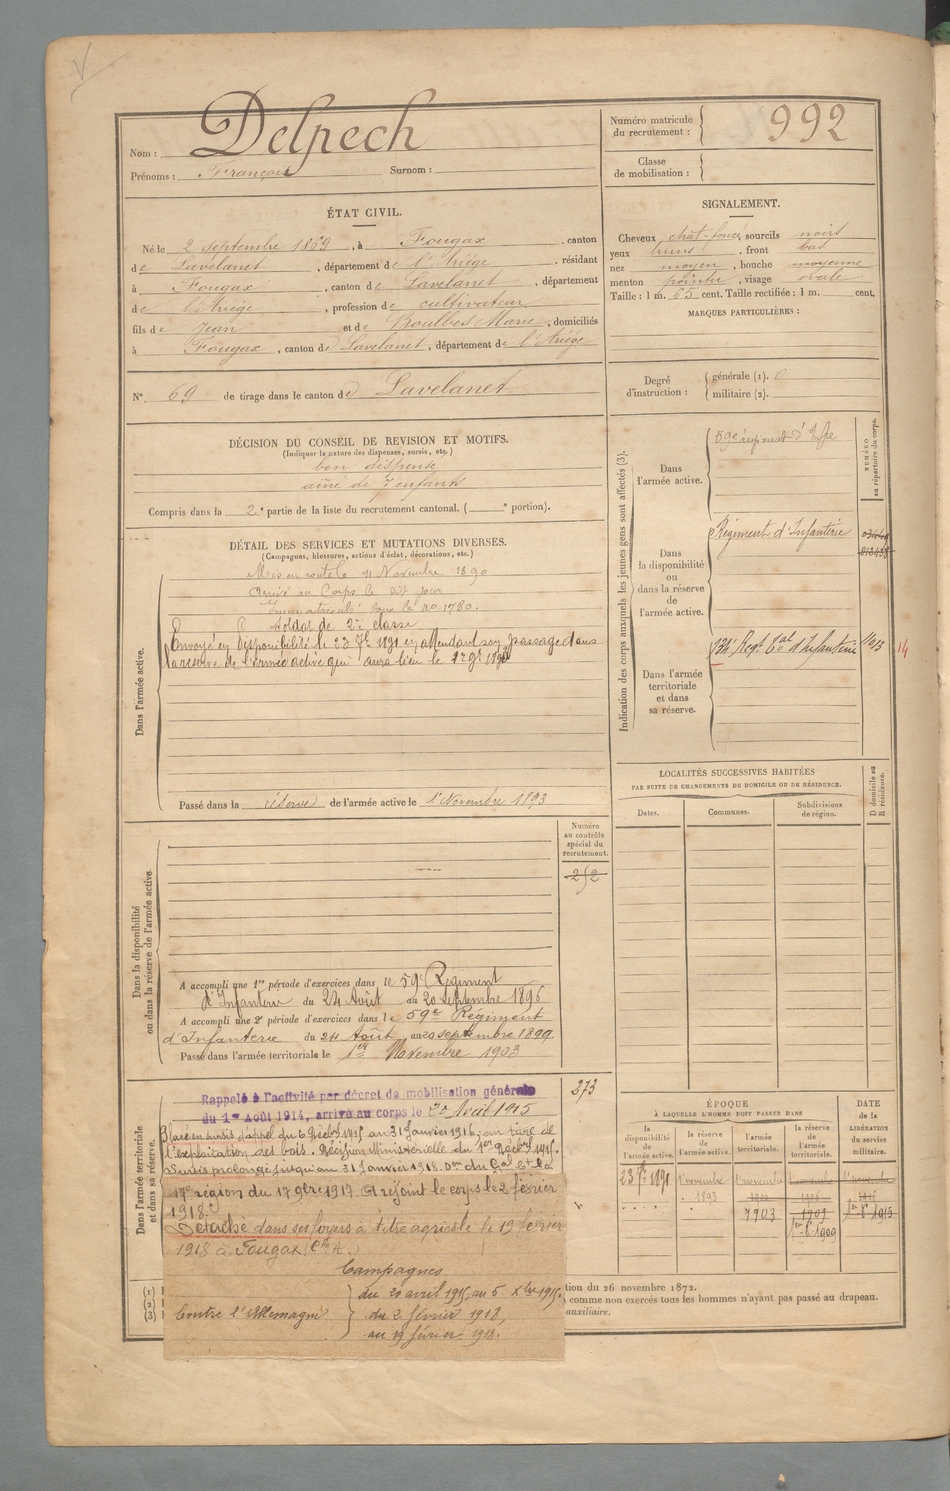 Nom : Delpech
Prénoms : François Surnom :
Numéro matricule du recrutement : 992
Classe de mobilisation :
ÉTAT CIVIL.
Né le 2 septembre 1869, à Fougax, canton
de Lavelanet, département de l'Ariège, résidant
à Fougax, canton de Lavelanet, département
de l'Ariège, profession de cultivateur
fils de Jean et de Boulbes Marie, domiciliés
à Fougax, canton de Lavelanet, département de l'Ariège
N° 69 de tirage dans le canton de Lavelanet
SIGNALEMENT.
Cheveux chât-foncé, sourcils noirs
yeux bruns, front bas
nez moyen, bouche moyenne
menton pointu, visage ovale
Taille : 1 m. 65 cent. Taille rectifiée : 1 m. cent.
MARQUES PARTICULIÈRES :
Degré d'instruction : générale (1). 0
militaire (2).
DÉCISION DU CONSEIL DE REVISION ET MOTIFS.
(Indiquer la nature des dispenses, sursis, etc.)
bon dispensé
aîné de 7 enfants
Compris dans la 2e partie de la liste du recrutement cantonal. ( e portion).
DÉTAIL DES SERVICES ET MUTATIONS DIVERSES.
(Campagnes, blessures, actions d'éclat, décorations, etc.)
Dans l'armée active.
Mis en route le 11 Novembre 1890
Arrivé au Corps le dit jour
Immatriculé sous le no 1780.
Soldat de 2e classe
Envoyé en disponibilité le 23 7bre 1891 en attendant son passage dans
la réserve de l'armée active qui aura lieu le 1er 9bre
Passé dans la réserve de l'armée active le 1er Novembre 1893
Indication des corps auxquels les jeunes gens sont affectés (3).
NUMÉRO au répertoire du corps.
Dans l'armée active.
59e régiment d'Infie
Dans la disponibilité ou dans la réserve de l'armée active.
Régiment d'Infanterie
Dans l'armée territoriale et dans sa réserve.
134e Regt Ctal d'Infanterie
14
LOCALITÉS SUCCESSIVES HABITÉES
PAR SUITE DE CHANGEMENTS DE DOMICILE OU DE RÉSIDENCE.
Dates. Communes. Subdivisions de région. D domicile ou R résidence.
Dans la disponibilité ou dans la réserve de l'armée active.
Numéro au contrôle spécial du recrutement.
252
A accompli une 1re période d'exercices dans le 59e Régiment
d'Infanterie du 24 Août au 20 Septembre 1896
A accompli une 2e période d'exercices dans le 59e Régiment
d'Infanterie du 24 Août au 20 septembre 1899
Passé dans l'armée territoriale le 1er Novembre 1903
Dans l'armée territoriale et dans sa réserve.
273
Rappelé à l'activité par décret de mobilisation générale
du 1er Août 1914, arrivé au corps le 20 Avril 1915
Placé en sursis d'appel du 6 Décbre 1915 au 31 Janvier 1916, au titre de
l'exploitation des bois. Décision Ministérielle du 1er Décbre 1915.
Sursis prolongé jusqu'au 31 Janvier 1918. On du Gal Ct la
17e région du 17 9bre 1917. A rejoint le corps le 2 février
1918.
Détaché dans ses foyers à titre agricole le 19 février
1918 à Fougax (Cie A.)
Campagnes
Contre l'Allemagne
du 20 avril 1915 au 5 Xbre 1915.
du 2 février 1918,
au 19 février 1918.
ÉPOQUE
À LAQUELLE L'HOMME DOIT PASSER DANS
la disponibilité de l'armée active. la réserve de l'armée active. l'armée territoriale. la réserve de l'armée territoriale. DATE de la LIBÉRATION du service militaire.
23 7bre 1891 1er novembre 1893
1903 1903
1er 8bre 1909
1er 8bre 1915
(1)
(2)
(3)
tion du 26 novembre 1872.
comme non exercés tous les hommes n'ayant pas passé au drapeau.
auxiliaire.